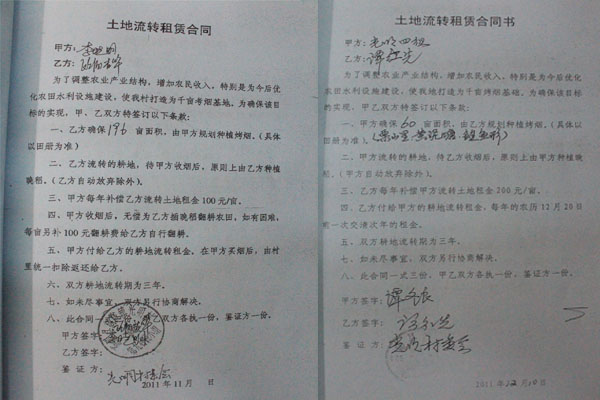 土地流转租赁合同
甲方：
乙方：
为了调整农业产业结构，增加农民收入，特别是为今后优
化农田水利设施建设，使我村打造为千亩考烟基地。为确保该目
标的实现，甲、乙双方特签订以下条款：
一、乙方确保196亩面积，由甲方规划种植烤烟。（具体
以田册为准）
二、乙方流转的耕地，待甲方收烟后，原则上由乙方种植
晚稻。（乙方自动放弃除外）。
三、甲方每年补偿乙方流转土地租金100元/亩。
四、甲方收烟后，无偿为乙方插晚稻翻耕农田，如有困难，
每亩另补100元翻耕费给乙方自行翻耕。
五、甲方付给乙方的耕地流转租金，在甲方买烟后，由村
里统一扣除返还给乙方。
六、双方耕地流转期为三年。
七、如未尽事宜，双方另行协商解决。
八、此合同一式三份，甲乙双方各执一份，鉴证方一份。
甲方签字：
乙方签字：
鉴 证 方：光明村委会
2011年11月 日
土地流转租赁合同书
甲方：光明四组
乙方：
为了调整农业产业结构，增加农民收入，特别是为今后优化
农田水利设施建设，使我村打造为千亩烤烟基础。为确保该目标
的实现，甲乙双方特签订以下条款：
一、甲方确保60亩面积，由乙方规划种植烤烟。（具体以
田册为准）
二、甲方流转的耕地，待乙方收烟后，原则上由甲方种植晚
稻。（甲方自动放弃除外）。
三、乙方每年补偿甲方流转土地租金200元/亩。
四、乙方付给甲方的耕地流转租金，每年的农历12月20日
前一次交清次年的租金。
五、双方耕地流转期为三年。
七、如未尽事宜，双方另行协商解决。
八、此合同一式三份，甲乙双方各执一份，鉴证方一份。
甲方签字：
乙方签字：
鉴 证 方：光明村委会
2011年12月10日